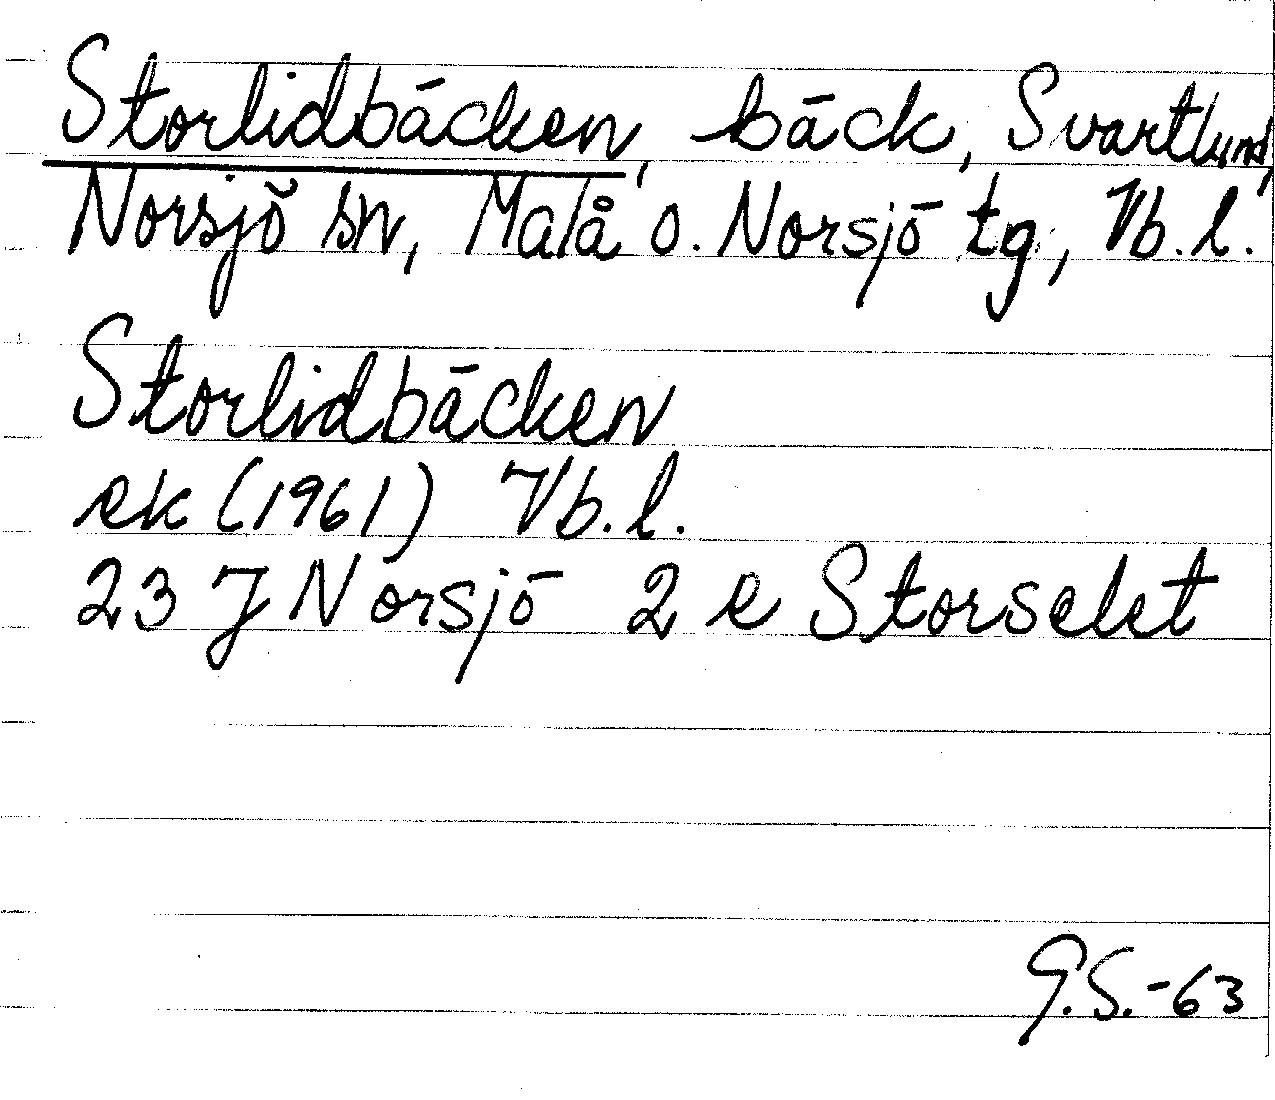 Storlidbäcken, bäck, Svartlund,
Norsjö sn, Malå o. Norsjö tg, Vb. l.
Storlidbäcken
ek (1961) Vb. l.
23 J Norsjö 2 e Storselet
G.S.-63